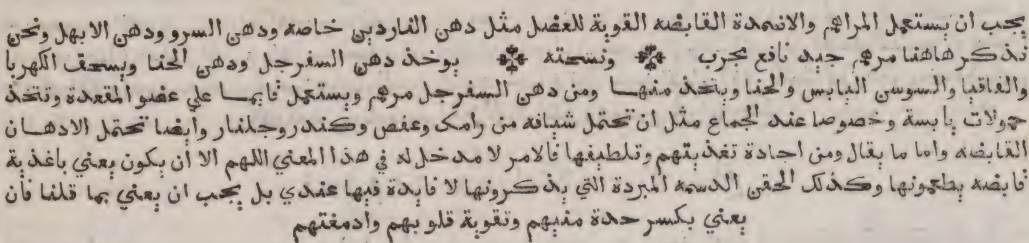 يجب ان يستعمل المراهم والاضمدة القابضه القوية للعضل مثل دهن الناردين خاصه ودهن السرو ودهن الابهل ونحن
نذكر هاهنا مرهم جيد نافع مجرب ۞ ونسخته ۞ يوخذ دهن السفرجل ودهن الحنا ويسحق الكهربا
والقاقيا والسوسن اليابس والحنا ويتخذ منهـا ومن دهن السفرجل مرهم ويستعمل فايمـا علي عضو المقعدة وتتخذ
حمولات يابسة وخصوصا عند الجماع مثل ان تحتمل شيافه من رامك وعفص وكندر وجلنار وايضا تحتمل الادهـان
القابضه واما ما يقال ومن اجادة تغذيتهم وتلطيفها فالامر لا مدخل له في هذا المعني اللهم الا ان يكون يعني باغذية
قابضه يطعمونها وكذلك الحقن الدسمه المبردة التي يذكرونها لا فايدة فيها عندي بل يجب ان يعني بما قلنا فان
يعني بكسر حدة منيهم وتقوية قلوبهم وادمغتهم